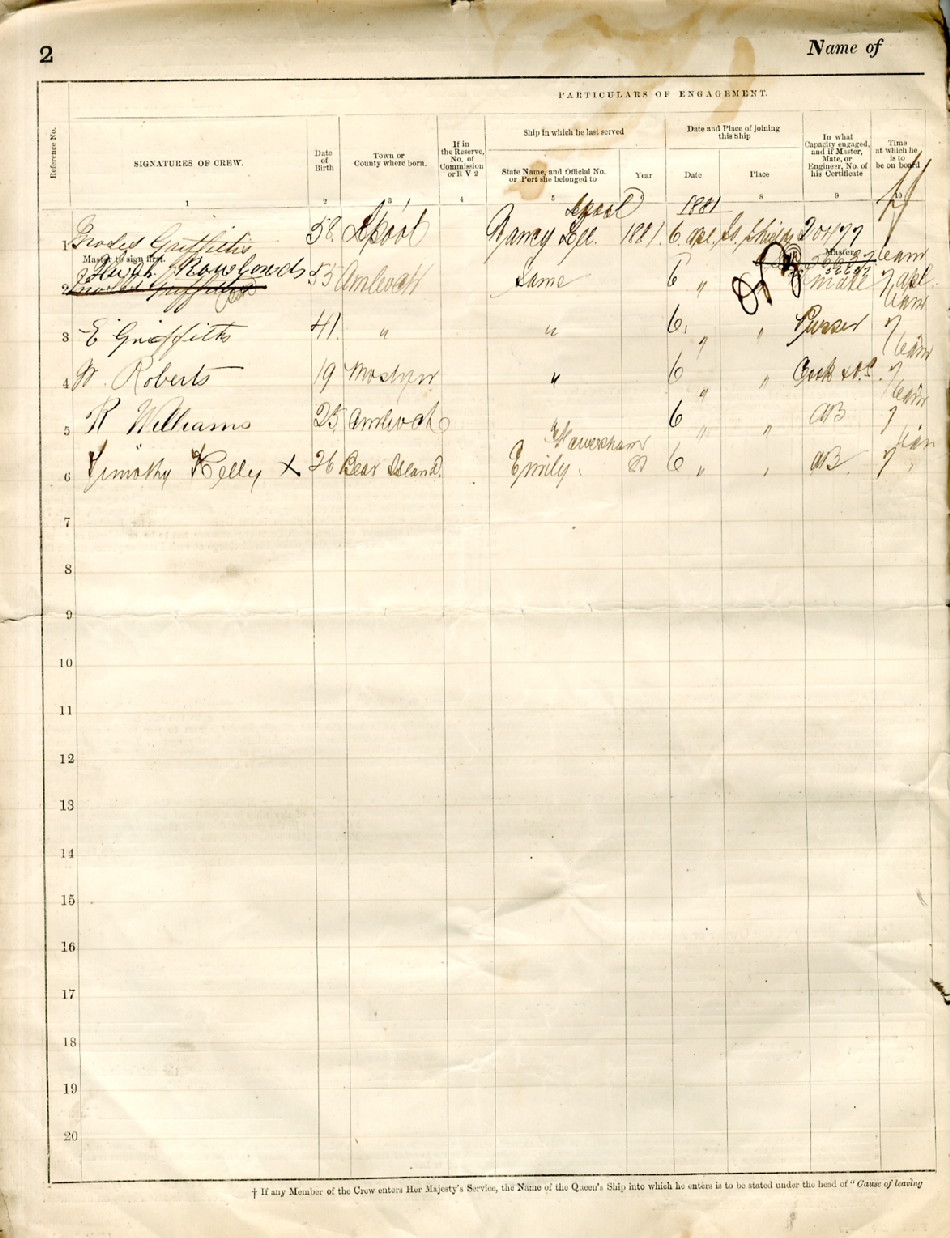 2
Name of
PARTICULARS OF ENGAGEMENT.
Reference No.
SIGNATURES OF CREW.
Date of Birth
Town or County where born.
If in the Reserve, No. of Commission or R V 2
Ship in which he last served
State Name, and Official No. or Port she belonged to
Year
Date and Place of joining this Ship
Date
Place
In what Capacity engaged, and if Master, Mate, or Engineer, No. of his Certificate
Time at which he is to be on board
1 2 3 4 5 8 9 10
L'pool 1881
1 Griffiths 58 L'pool Nancy Lee. 1881. 6 Shields 20477
Master to sign first. Master
2 Rowlands 53 Amlwch Same 6 " Mate 7
3 E Griffiths 41. " " 6 " " Purser 7
4 W. Roberts 19 Mostyn " 6 " " Cook 7
5 R Williams 25 Amlwch " 6 " " AB 7
Faversham
6 Timothy Kelly X 26 Bear Island Emily. 6 " " AB 7
7
8
9
10
11
12
13
14
15
16
17
18
19
20
† If any Member of the Crew enters Her Majesty's Service, the Name of the Queen's Ship into which he enters is to be stated under the head of "Cause of leaving